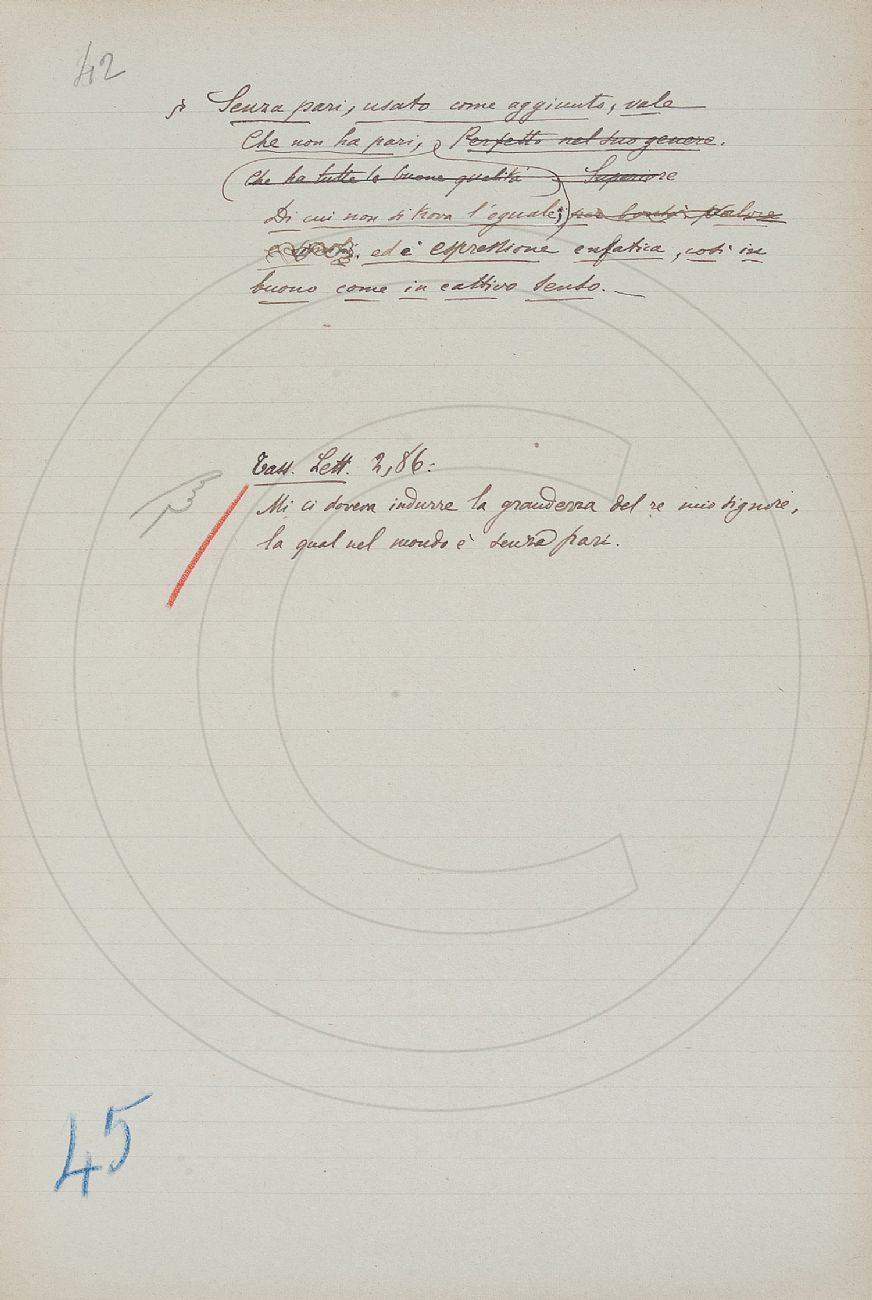 42
Senza pari, usato come aggiunto, vale
Che non ha pari, Perfetto nel suo genere.
Che ha tutte le buone qualità Superiore
Di cui non si trova l'eguale; per bontà, valore
ed è espressione enfatica, così in
buono come in cattivo senso. —
Tass. Lett. 2, 86:
Mi ci doveva indurre la grandezza del re mio signore,
la qual nel mondo è senza pari.
45